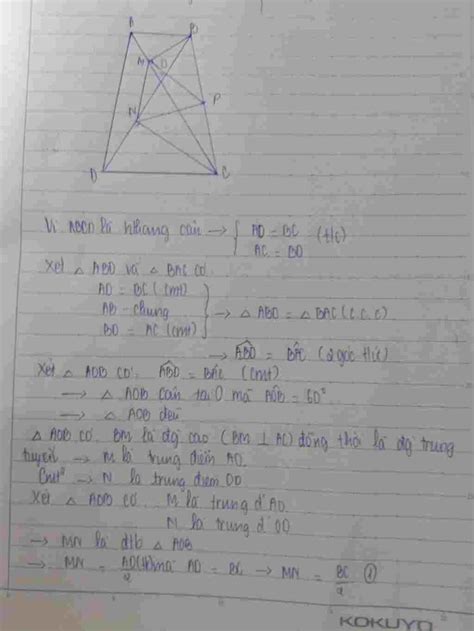 A B
M O
N P
D C
Vì ABCD là hthang cân → { AD = BC (t/c)
AC = BD
Xét △ ABD và △ BAC có
AD = BC (cmt)
AB - chung
BD = AC (cmt)
→ △ ABD = △ BAC (c.c.c)
→ ABD = BAC (2 góc t/ứ)
Xét △ AOB có: ABD = BAC (cmt)
→ △ AOB cân tại O mà AOB = 60°
→ △ AOB đều
△ AOB có BM là đg cao (BM ⊥ AC) đồng thời là đg trung
tuyến → M là trung điểm AO
Cmt² → N là trung điểm OD
Xét △ AOD có M là trung đ' AO
N là trung đ' OD
→ MN là đtb △ AOB
→ MN = AD/2 mà AD = BC → MN = BC/2 ①
KOKUYO